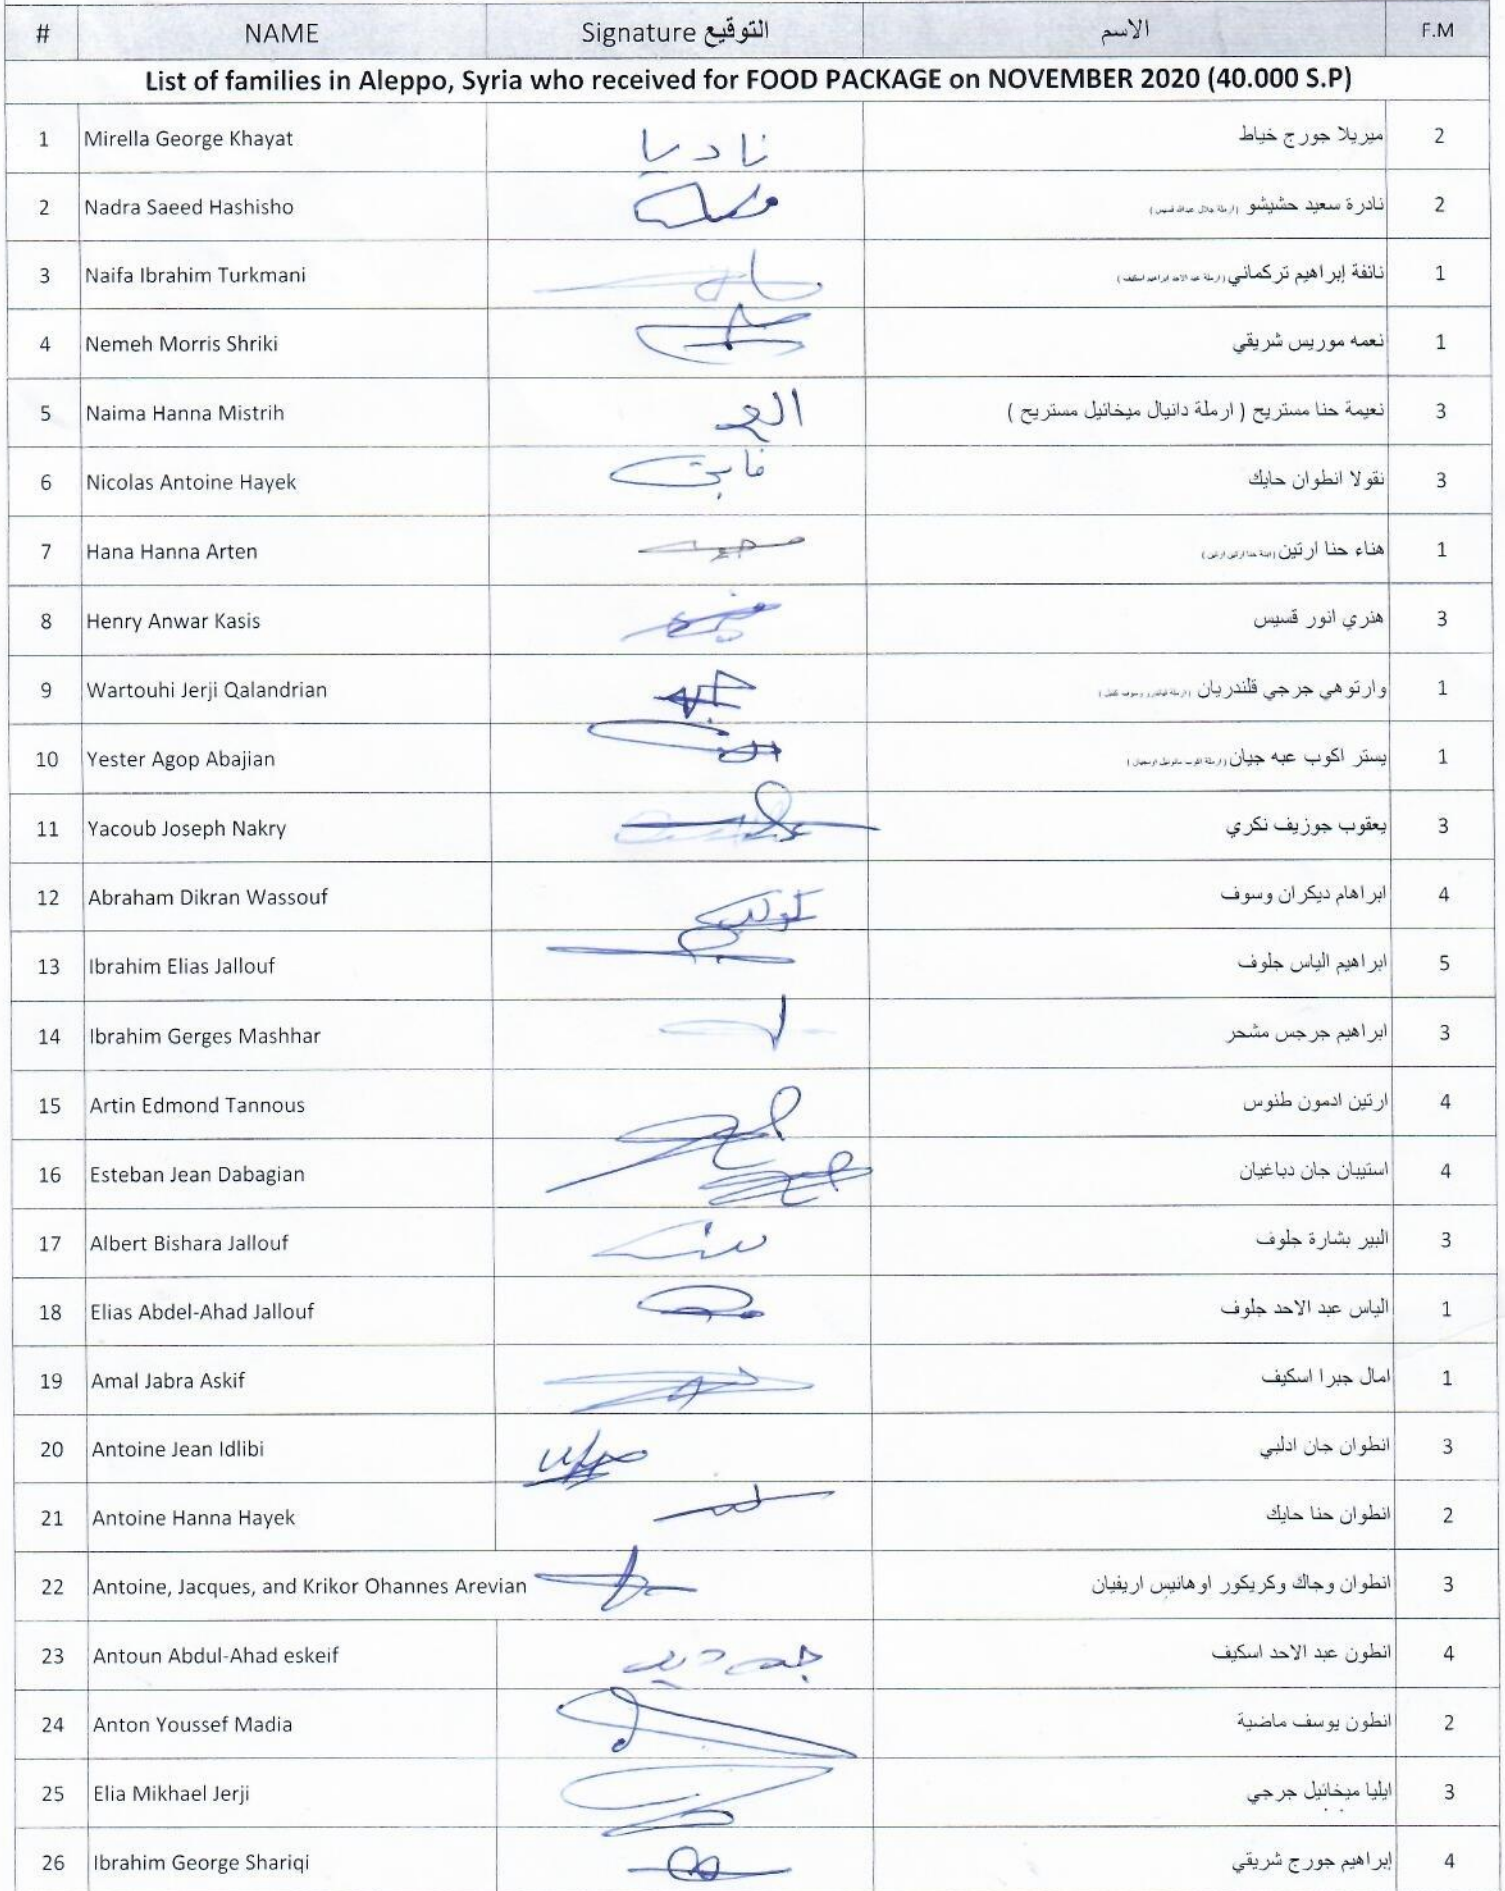 # NAME Signature التوقيع الاسم F.M
List of families in Aleppo, Syria who received for FOOD PACKAGE on NOVEMBER 2020 (40.000 S.P)
1 Mirella George Khayat ناديا ميريلا جورج خياط 2
2 Nadra Saeed Hashisho نادرة سعيد حشيشو (ارملة جلال عبدالله قسيس) 2
3 Naifa Ibrahim Turkmani نائفة إبراهيم تركماني (ارملة عبد الاحد ابراهيم اسكيف) 1
4 Nemeh Morris Shriki نعمه موريس شريقي 1
5 Naima Hanna Mistrih نعيمة حنا مستريح ( ارملة دانيال ميخائيل مستريح ) 3
6 Nicolas Antoine Hayek نقولا انطوان حايك 3
7 Hana Hanna Arten هناء حنا ارتين (ابنة حنا ارتين ارتين) 1
8 Henry Anwar Kasis هنري انور قسيس 3
9 Wartouhi Jerji Qalandrian وارتوهي جرجي قلندريان 1
10 Yester Agop Abajian يستر اكوب عبه جيان 1
11 Yacoub Joseph Nakry يعقوب جوزيف نكري 3
12 Abraham Dikran Wassouf ابراهام ديكران وسوف 4
13 Ibrahim Elias Jallouf ابراهيم الياس جلوف 5
14 Ibrahim Gerges Mashhar ابراهيم جرجس مشحر 3
15 Artin Edmond Tannous ارتين ادمون طنوس 4
16 Esteban Jean Dabagian استيبان جان دباغيان 4
17 Albert Bishara Jallouf البير بشارة جلوف 3
18 Elias Abdel-Ahad Jallouf الياس عبد الاحد جلوف 1
19 Amal Jabra Askif امال جبرا اسكيف 1
20 Antoine Jean Idlibi انطوان جان ادلبي 3
21 Antoine Hanna Hayek انطوان حنا حايك 2
22 Antoine, Jacques, and Krikor Ohannes Arevian انطوان وجاك وكريكور اوهانيس اريفيان 3
23 Antoun Abdul-Ahad eskeif انطون عبد الاحد اسكيف 4
24 Anton Youssef Madia انطون يوسف ماضية 2
25 Elia Mikhael Jerji ايليا ميخائيل جرجي 3
26 Ibrahim George Shariqi إبراهيم جورج شريقي 4